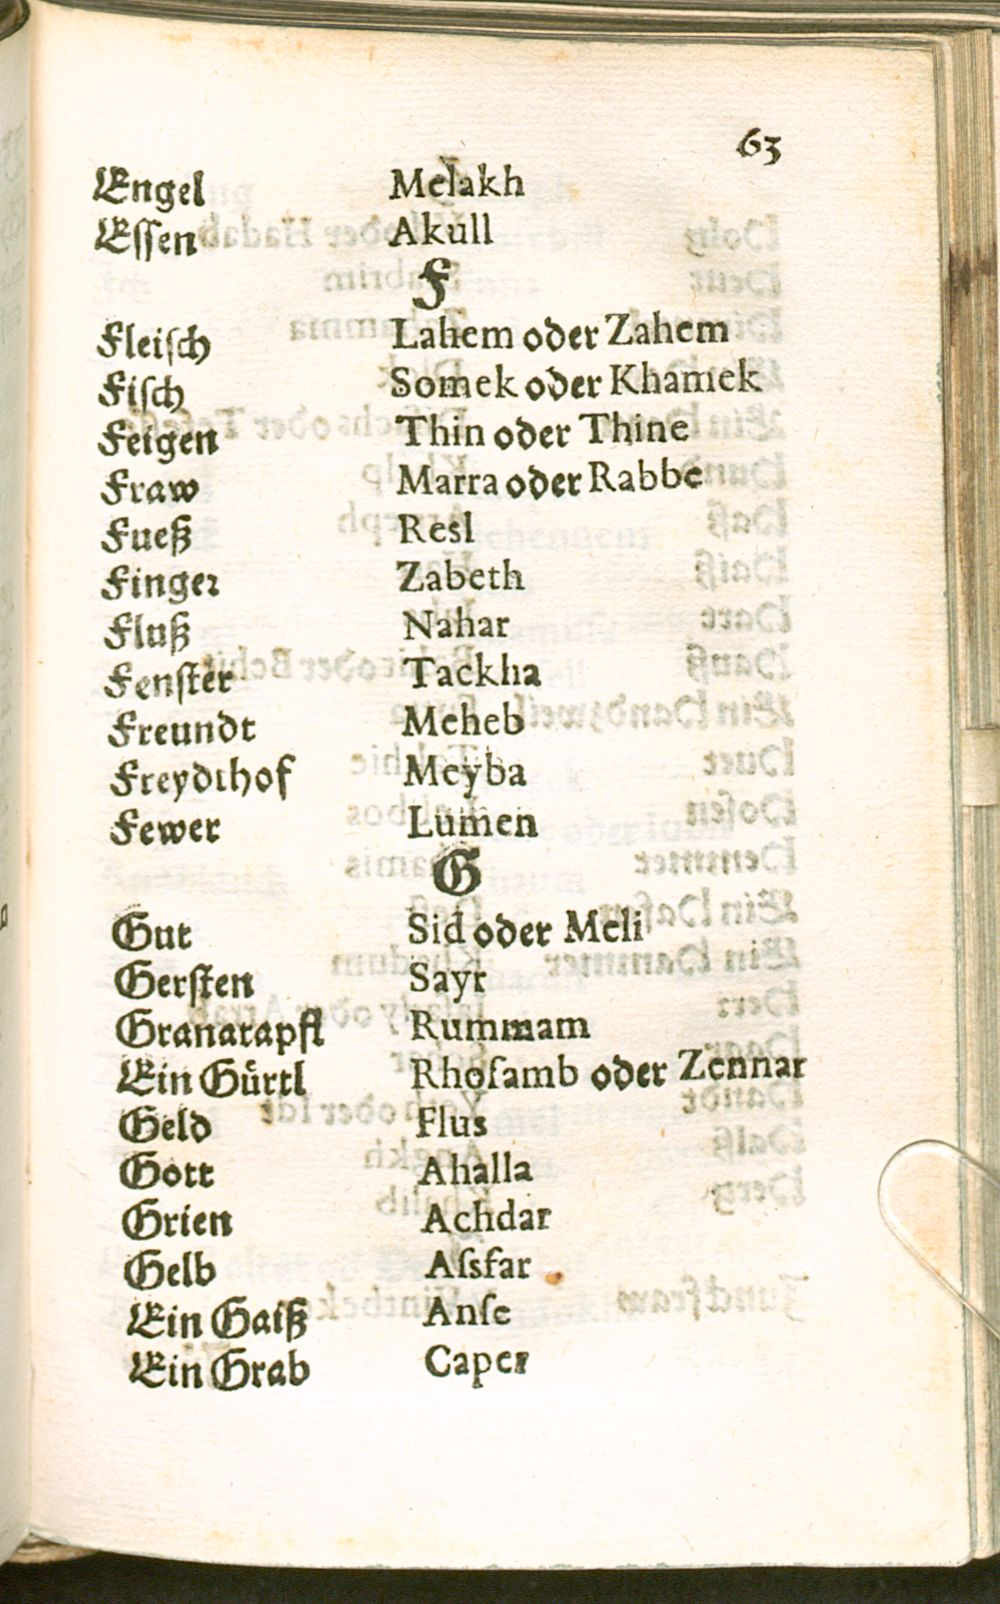 63
Engel Melakh
Eſſen Akull
F
Fleiſch Lahem oder Zahem
Fiſch Somek oder Khamek
Feigen Thin oder Thine
Fraw Marra oder Rabbe
Fueß Resl
Finger Zabeth
Fluß Nahar
Fenſter Tackha
Freundt Meheb
Freydthof Meyba
Fewer Lumen
G
Gut Sid oder Meli
Gerſten Sayr
Granatapfl Rummam
Ein Gürtl Rhoſamb oder Zennar
Geld Flus
Gott Ahalla
Grien Achdar
Gelb Aſsfar
Ein Gaiß Anſe
Ein Grab Caper